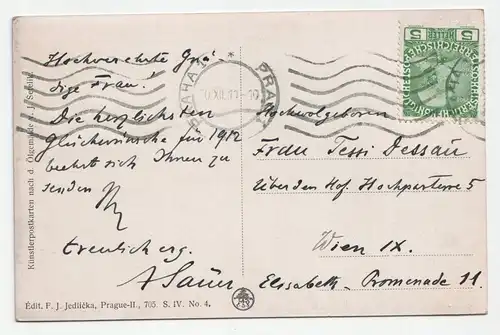 Hochverehrte Gnä-
dige Frau!
Die herzlichsten
Glückwünsche für 1912
beehrt sich Ihnen zu
senden Ihr
treulich erg.
A Sauer
PRAHA 1 * PRAG
XII.11
5 5
Hochwolgeboren
Frau Tessi Dessau
Über den Hof. Hochparterre 5
Wien IX.
Elisabeth-Promenade 11.
Künstlerpostkarten nach d. Ölgemälde v. J. Setelik.
Édit. F. J. Jedlička, Prague-II., 705. S. IV. No. 4.